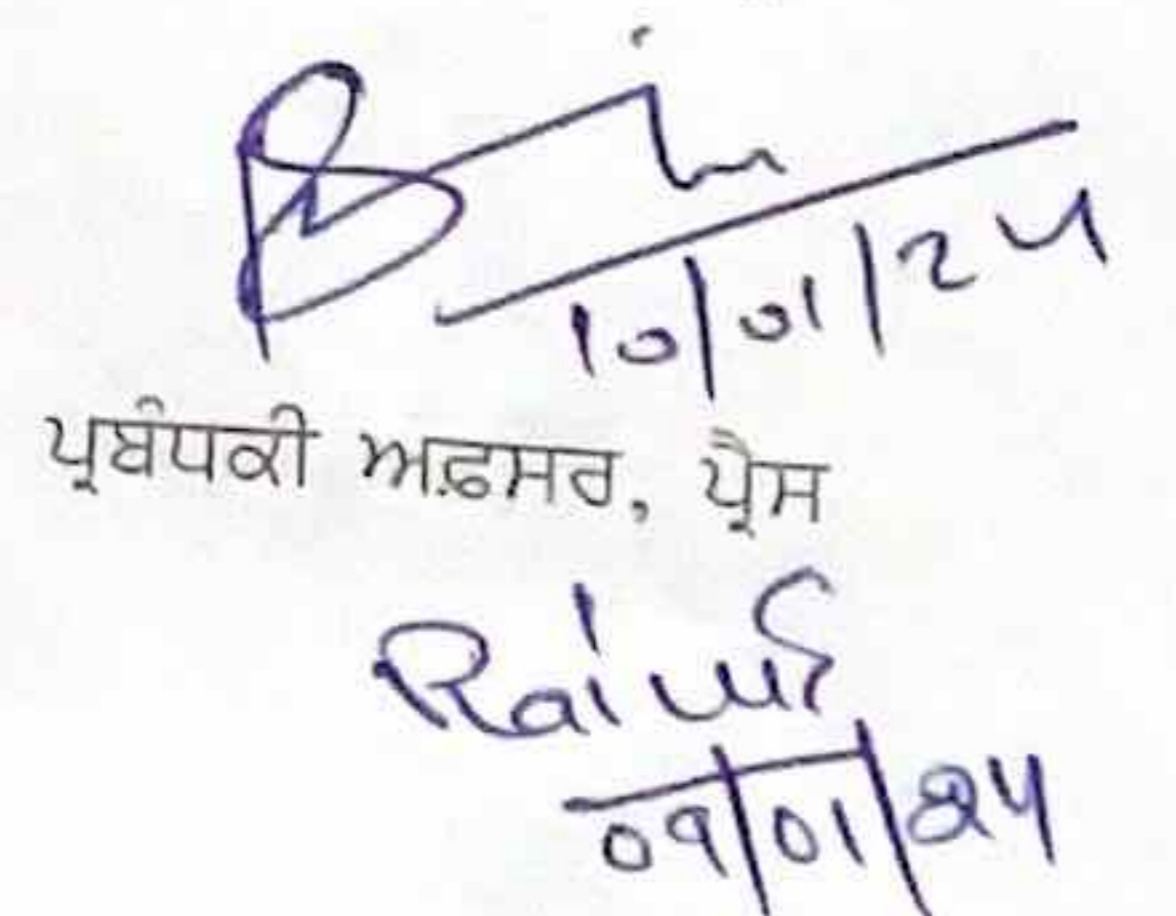 10/01/24
ਪ੍ਰਬੰਧਕੀ ਅਫ਼ਸਰ, ਪ੍ਰੈਸ
09/01/24